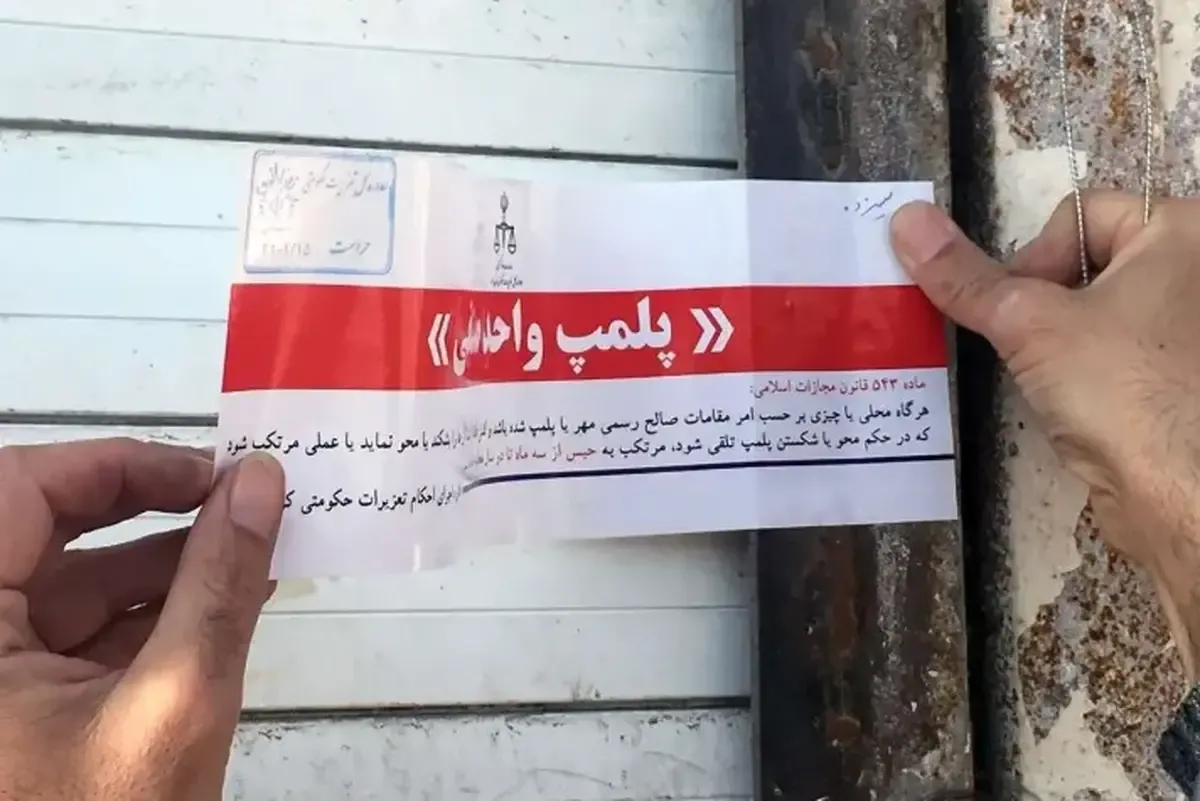 سیزده
حراست
« پلمپ واحد صنفی »
ماده ۵۴۳ قانون مجازات اسلامی:
هرگاه محلی یا چیزی بر حسب امر مقامات صالح رسمی مهر یا پلمپ شده باشد و را بشکند یا محو نماید یا عملی مرتکب شود
که در حکم محو یا شکستن پلمپ تلقی شود، مرتکب به حبس از سه ماه تا دو سال
اجرای احکام تعزیرات حکومتی